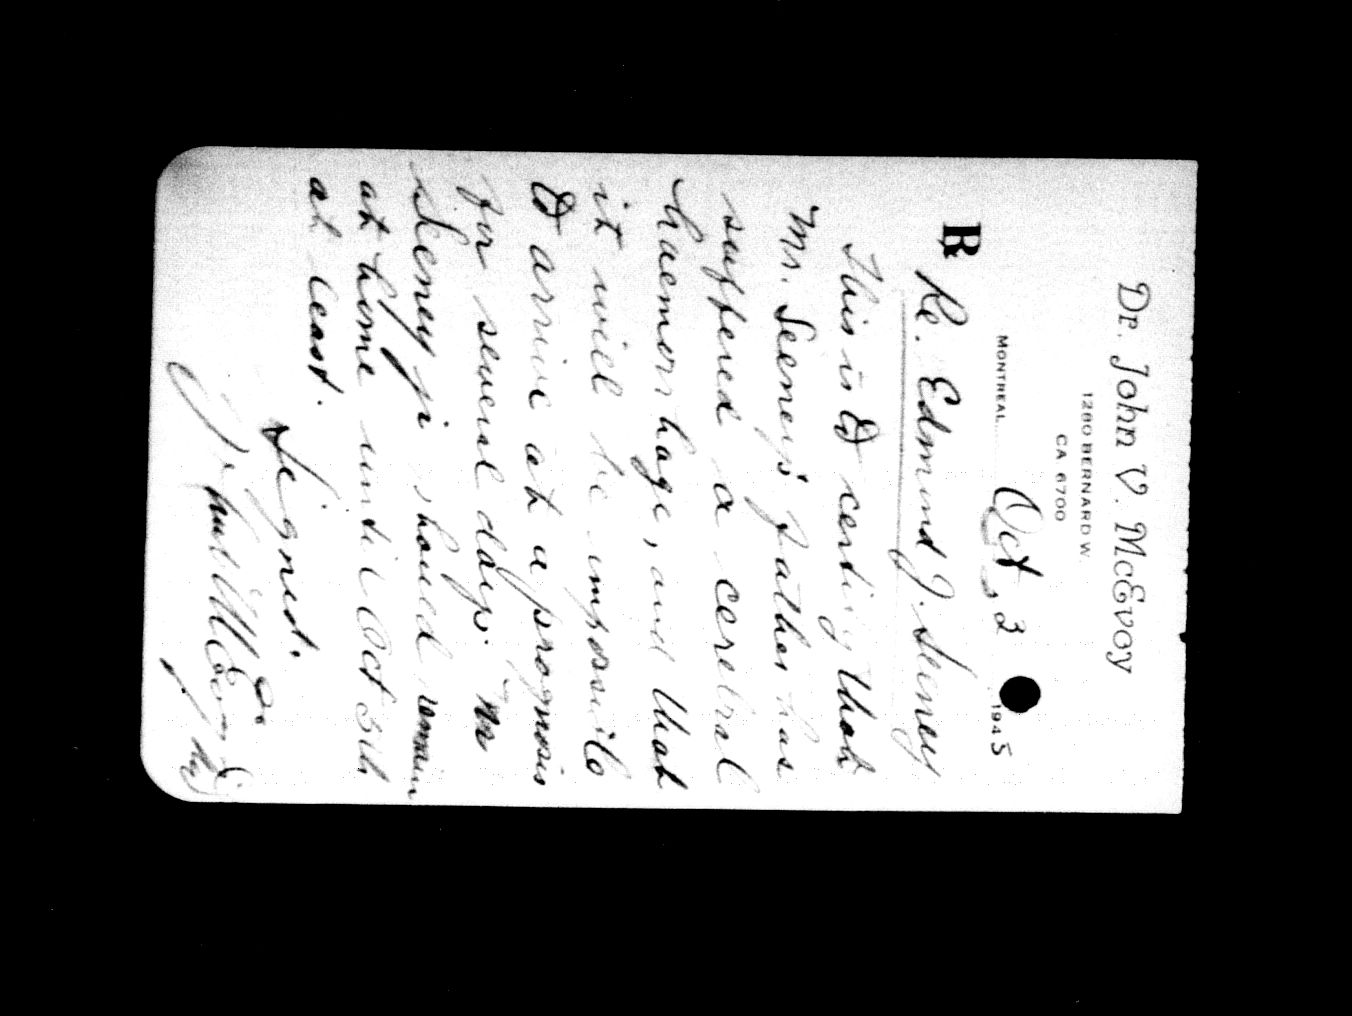 Dr. John V. McEvoy
1280 BERNARD W.
CA 6700
MONTREAL Oct. 3 1945
℞ Re. Edmund J. Seeney
This is to certify that
Mr. Seeney's father has
suffered a cerebral
haemorrhage, and that
it will be impossible
to arrive at a prognosis
for several days. Mr
Seeney jr should remain
at home until Oct 5th
at least.
Signed.
John V McEvoy